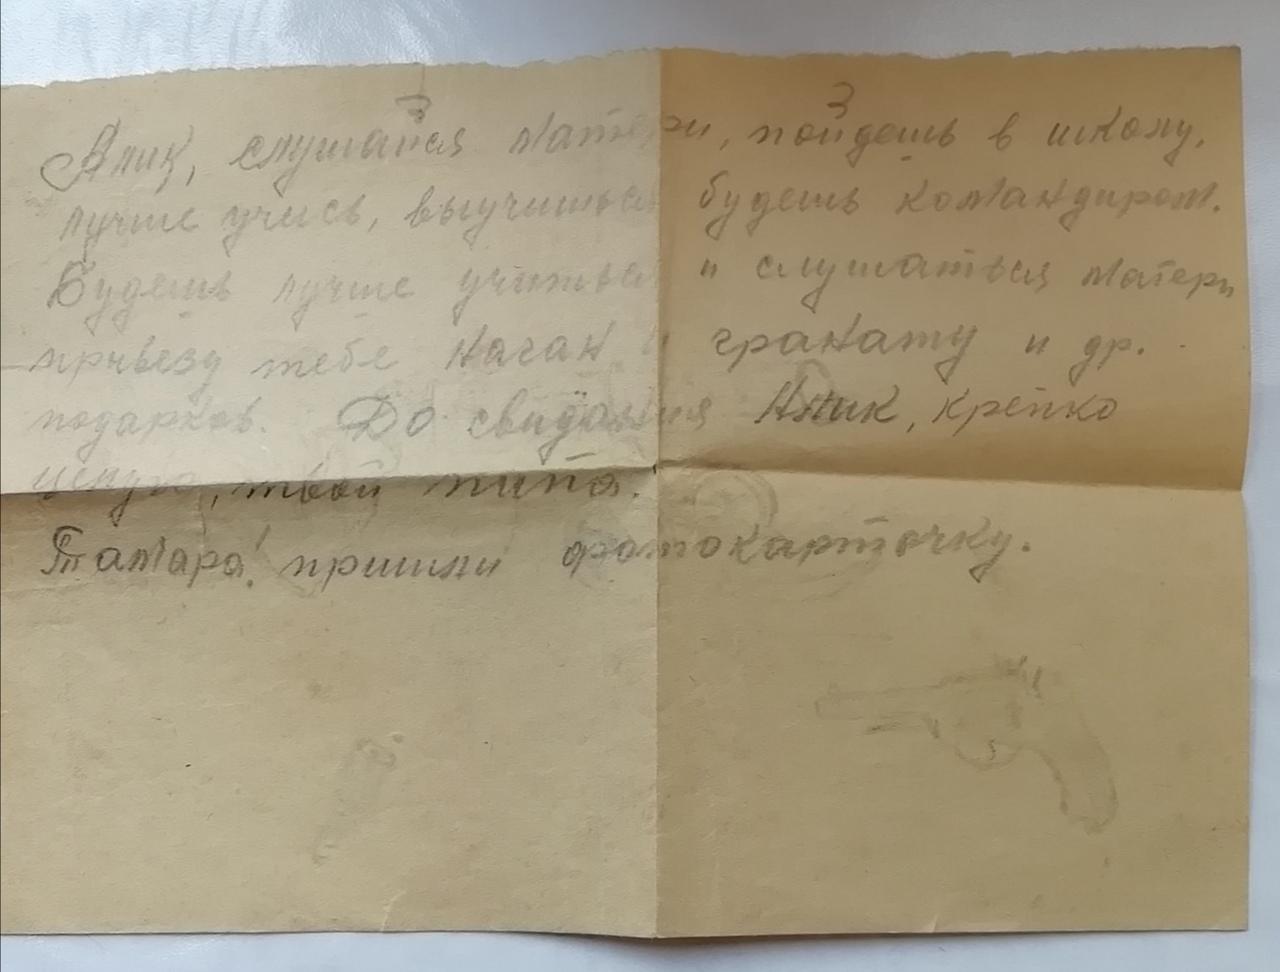 Алик, слушайся матери, пойдешь в школу,
лучше учись, выучишься будешь командиром.
Будешь лучше учиться и слушаться матери
привезу тебе наган и гранату и др.
подарков. До свидания Алик, крепко
целую, твой папа.
Тамара! пришли фотокарточку.